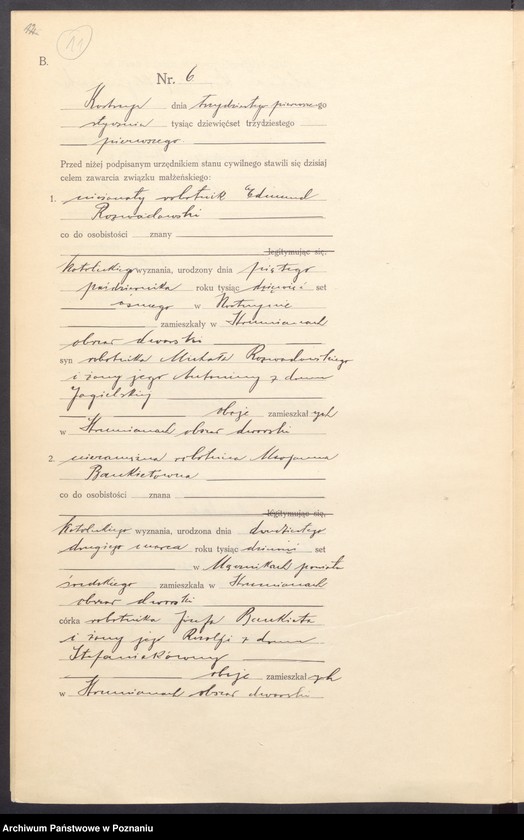 12
11
B.
Nr. 6
Kostrzyn dnia trzydziestego pierwszego
stycznia tysiąc dziewięćset trzydziestego
pierwszego.
Przed niżej podpisanym urzędnikiem stanu cywilnego stawili się dzisiaj
celem zawarcia związku małżeńskiego:
1. nieżonaty robotnik Edmund
Rozwadowski
co do osobistości znany
legitymując się,
katolickiego wyznania, urodzony dnia piątego
października roku tysiąc dziewięć set
ósmego w
zamieszkały w Strumianach
obszar dworski
syn robotnika Michała Rozwadowskiego
i żony jego Antoniny z domu
Jagielskiej
oboje zamieszkałych
w Strumianach obszar dworski
2. niezamężna robotnica Marjanna
Bankietówna
co do osobistości znana
legitymując się,
katolickiego wyznania, urodzona dnia dwudziestego
drugiego marca roku tysiąc dziewięć set
w Mącznikach powiatu
średzkiego zamieszkała w Strumianach
obszar dworski
córka robotnika Józefa Bankieta
i żony jego Rozalji z domu
Stefaniakówny
oboje zamieszkałych
w Strumianach obszar dworski
Archiwum Państwowe w Poznaniu